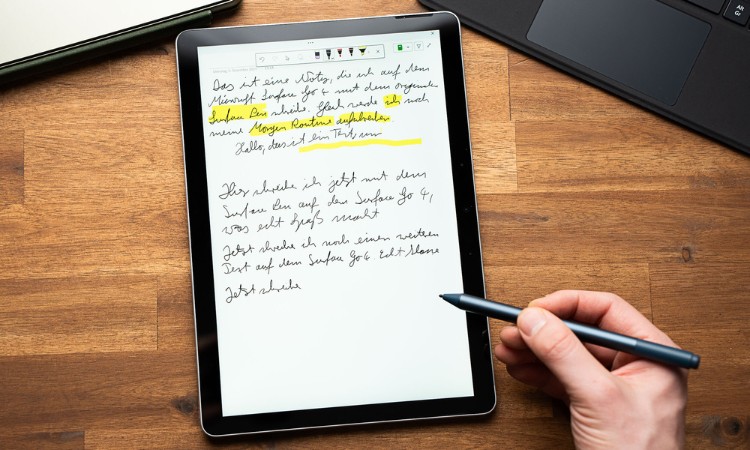 Das ist eine Notiz, die ich auf dem
Microsoft Surface Go 4 mit dem
Surface Pen schreibe. Gleich werde ich noch
meine Morgen Routine aufschreiben.
Hallo, das ist ein Text um
Hier schreibe ich jetzt mit dem
Surface Pen auf dem Surface Go 4,
was echt Spaß macht
Jetzt schreibe ich noch einen weiteren
Text auf dem Surface Go 4 Echt klasse
Jetzt schreibe
Alt
Gr